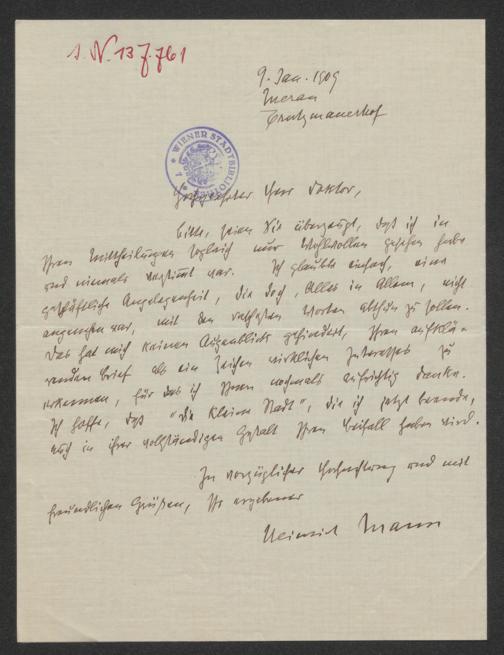 I. N. 137.761
9. Jan. 1909
Meran
WIENER STADTBIBLIOTHEK
Hochgeehrter Herr Doktor,
bitte, seien Sie überzeugt, daß ich in
Ihren Mittheilungen sogleich nur Wohlwollen gesehen habe
und niemals verstimmt war. Ich glaubte einfach, eine
geschäftliche Angelegenheit, die doch, Alles in Allem, nicht
angenehm war, mit den Worten abthun zu sollen.
Das hat mich keinen Augenblick gehindert, Ihren aufklä-
renden Brief als ein Zeichen wirklichen Interesses zu
erkennen, für das ich Ihnen nochmals aufrichtig danke.
Ich hoffe, daß "die kleine Stadt", die ich jetzt beende,
auch in ihrer vollständigen Gestalt Ihren Beifall haben wird.
In vorzüglicher Hochachtung und mit
freundlichen Grüßen, Ihr ergebener
Heinrich Mann